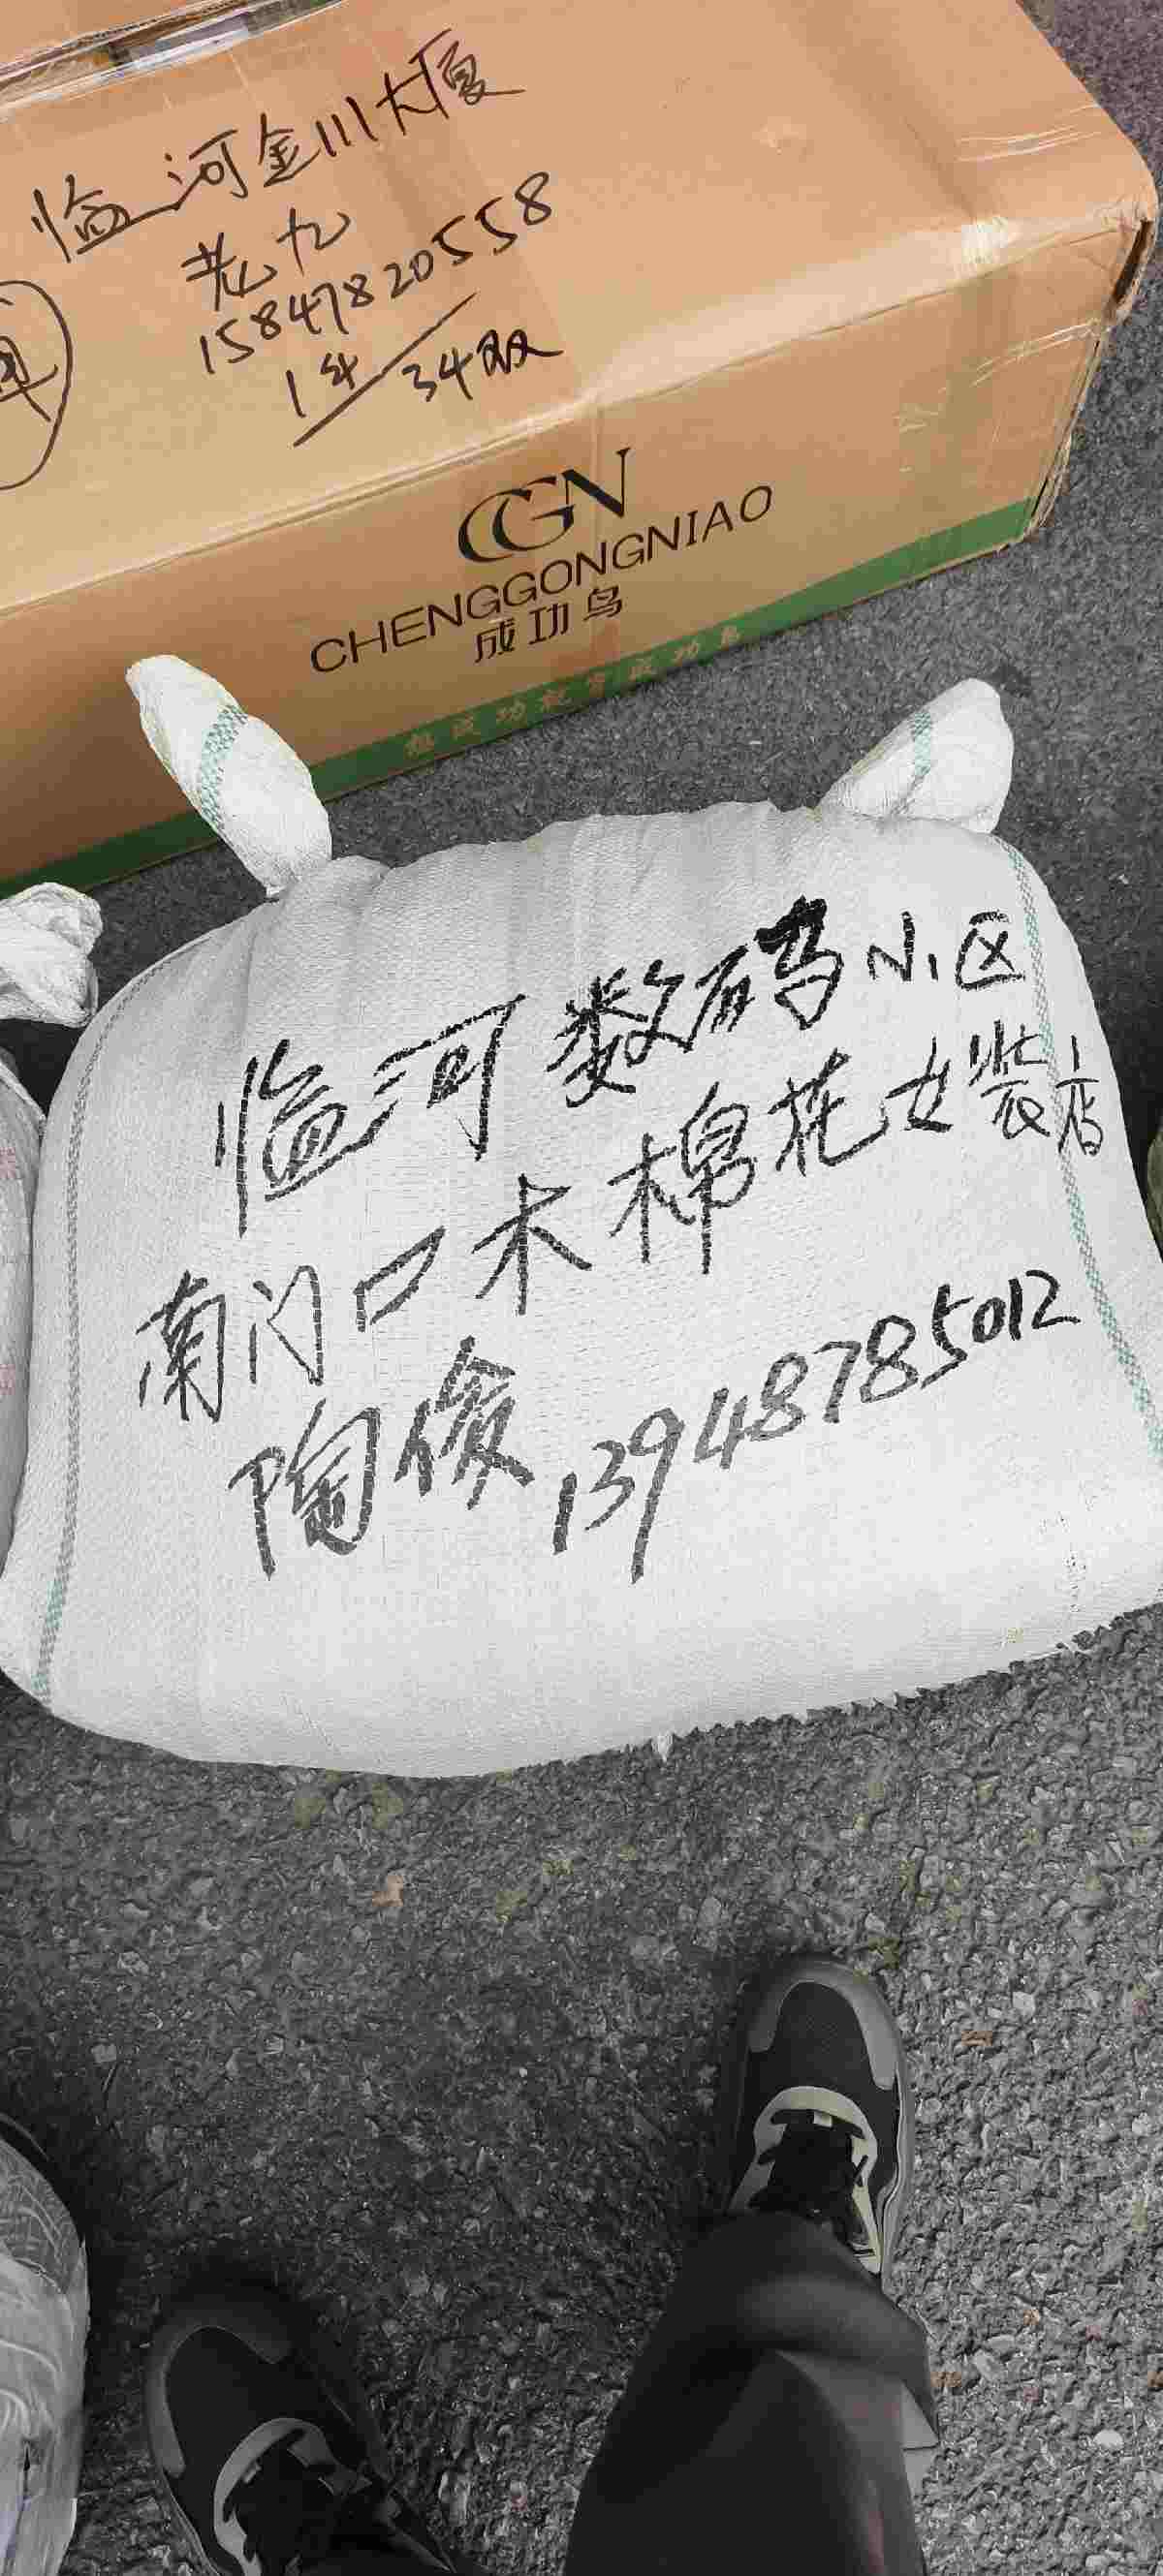 临河金川大厦
老九
15847820558
1件 34双
CGN
CHENGGONGNIAO
成功鸟
临河数码小区
南门口木棉花女装店
陶俊 13948785012